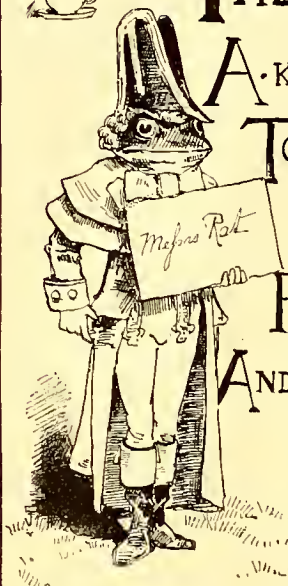 A·K
To
Meſsrs Rat
AND